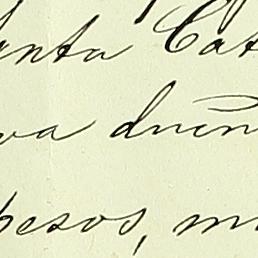 anta Cat
va dueñ
pesos, m